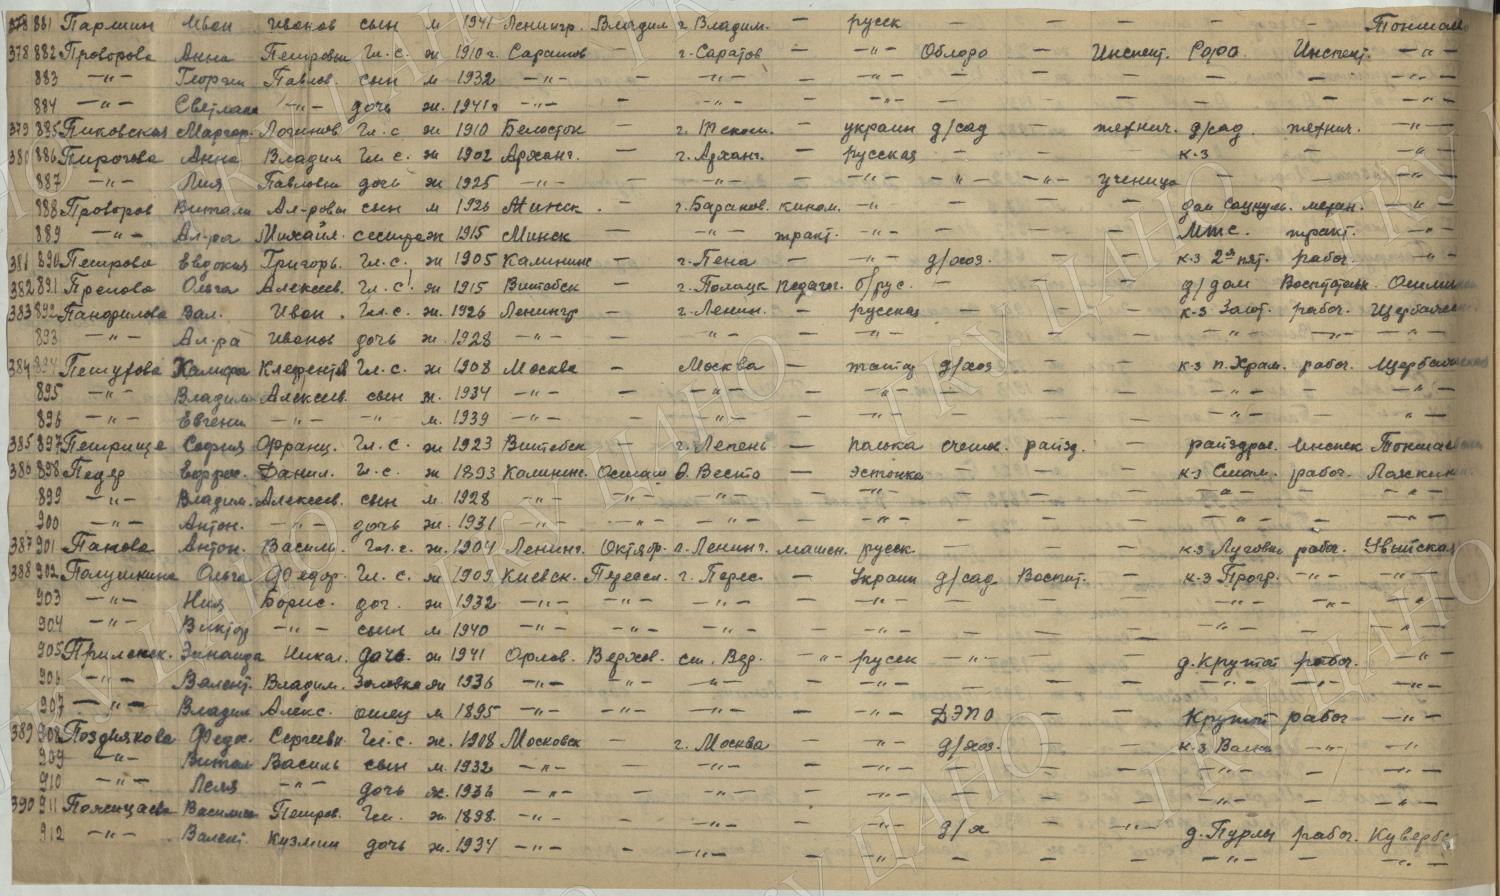 378 881 Паршин Иван Иванов сын м 1941 Ленингр. Владим г. Владим. — русск — — — — — Тоншаев
378 882 Проворова Анна Петровна Гл. с. ж 1910 г. Саратов — г. Саратов — — " — Облоро — Инспект. Рофо. Инспект. — " —
883 — " — Георги Павлов. сын м 1932 — " — — — " — — — " — — — — — — — " —
884 — " — Светлана — " — дочь ж. 1941 г — " — — — " — — — " — — — — — — — " —
379 885 Пиковская Маргар. Логинов Гл. с ж 1910 Белосток г. — украин д/сад — технич. д/сад. технич. — " —
380 886 Пирогова Анна Владим Гл. с. ж 1902 Арханг. — г. Арханг. — русская — — к-з — — " —
887 — " — Лия Павловна дочь ж 1925 — " — — — " — — — " — — " — — " — ученица — — — " —
888 Проворов Витали Ал-ровы сын м 1926 Минск. — г. Баранов. кином. — " — — — — дом механ. — " —
889 — " — Ал-ра Михайл. сестра ж 1915 Минск — — " — тракт. — " — — — — Мтс. тракт. — " —
381 890 Петрова Евдокия Григорь. Гл. с. ж 1905 Калинин — г. Пена — — " — д/хоз. — — к-з 2ая пят. рабоч. — " —
382 891 Прелова Ольга Алексеев. Гл. с. ж 1915 Витебск — г. Полоцк педагог. б/рус. — — — д/дом Воспитательн.
383 892 Панфилова Вал. Иван. Гл. с. ж. 1926 Ленингр — г. Ленин. — русская — — — к-з Загот. рабоч. Щербажск
893 — " — Ал-ра Иванов дочь ж. 1928 — " — — — " — — — " — — — — — " — — " — — " —
384 894 Петурова Клефентов Гл. с. ж 1908 Москва — Москва — д/хоз — — к-з п. Храм. рабоч. Щербажской
895 — " — Владим. Алексеев. сын м. 1934 — " — — — " — — — " — — — — — " — — — " —
896 — " — Евгени — " — — " — м. 1939 — " — — — " — — — " — — — — — " — — — " —
385 897 Петрище София Франц. Гл. С. ж 1923 Витебск — г. Лепень — полька счетов. райзд. — райздрав. Инспек Тоншаев
386 898 Педер Ефрос. Данил. Гл. с. ж 1893 Калинин. Осташ д. Веста — эстонка — — — к-з Смол. рабоч. Ложкин
899 — " — Владим. Алексеев. сын м. 1928 — " — — " — — " — — — " — — — — — " — — — " —
900 — " — Антон. — " — дочь ж. 1931 — " — — " — — " — — — " — — — — — " — — — " —
387 901 Панова Антон. Василь. Гл. с. ж. 1904 Ленинг. Октябр. г. Ленинг. машин. русск — — — к-з Лугови рабоч. Увийская
388 902 Полушкина Ольга Федор. Гл. с. ж 1909 Киевск. Переясл. г. Перес. — Украин д/сад Воспит. — к-з Прогр. — " — — " —
903 — " — Ния Борис. доч. ж 1932 — " — — " — — " — — — " — — — — — — " — — " —
904 — " — Виктор — " — сын м 1940 — " — — " — — " — — — " — — — — — — — " —
905 Приленск. Зинаида Никол. дочь. ж 1941 Орлов. Верхов. ст. Вер. — " — русск — " — — — д. Крутой рабоч. — " —
906 — " — Валент. Владим. Золовка ж 1936 — " — — " — — " — — — " — — — — — " — — " — — " —
907 — " — Владим Алекс. отец м 1895 — " — — " — — " — — — " — ДЭПО — — Крутой рабоч — " —
389 908 Позднякова Федос. Сергеевн Гл. с. ж. 1908 Московск г. Москва — " — д/хоз. — — к-з Васки — " — — " —
909 — " — Витал Василь сын м. 1932 — " — — — " — — — " — — — — — " — — — " —
910 — " — Леля — " — дочь ж. 1936 — " — — — " — — — " — — — — — " — — — " —
390 911 Поженцаева Василиса Петров. Гл. ж 1898. — " — — — " — — — " — д/х — — " — д. Пурлы рабоч. Куверб
912 — " — Валент Кузмин дочь ж. 1934 — " — — — " — — — " — — — — — " — — — " —
ГКУ ЦАНО